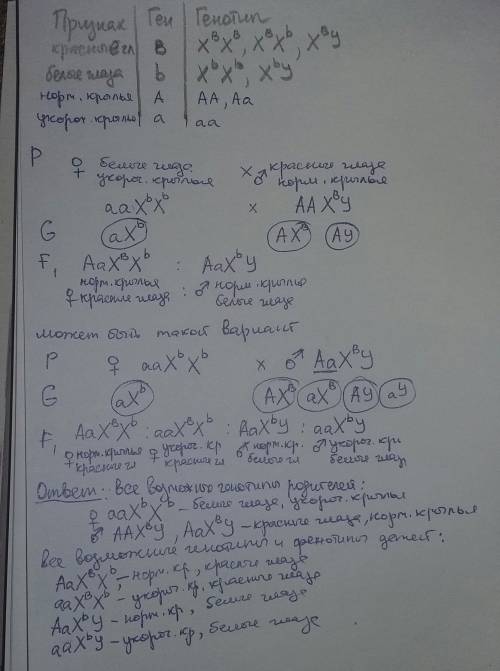 Признак | Ген | Генотип
красные гл | B | XᴮXᴮ, XᴮXᵇ, XᴮY
белые глаза | b | XᵇXᵇ, XᵇY
норм. крылья | A | AA, Aa
укорот. крылья | a | aa
P ♀ белые глаза × ♂ красные глаза
укороч. крылья норм. крылья
aaXᵇXᵇ × AAXᴮY
G aXᵇ AXᴮ AY
F₁ AaXᴮXᵇ : AaXᵇY
норм. крылья норм. крылья
♀ красные глаза : ♂ белые глаза
может быть такой вариант
P ♀ aaXᵇXᵇ × ♂ AaXᴮY
G aXᵇ AXᴮ aXᴮ AY aY
F₁ AaXᴮXᵇ : aaXᴮXᵇ : AaXᵇY : aaXᵇY
♀ норм. крылья ♀ укороч. кр ♂ норм. кр. ♂ укороч. кри
красные гл красные гл белые гл белые глаз
Ответ: все возможны генотипы родителей:
♀ aaXᵇXᵇ – белые глаза, укороч. крылья
♂ AAXᴮY, AaXᴮY – красные глаза, норм. крылья
все возможные генотипы и фенотипы детей:
AaXᴮXᵇ – норм. кр, красные глаза
aaXᴮXᵇ – укороч. кр, красные глаза
AaXᵇY – норм. кр, белые глаза
aaXᵇY – укороч. кр, белые глаза